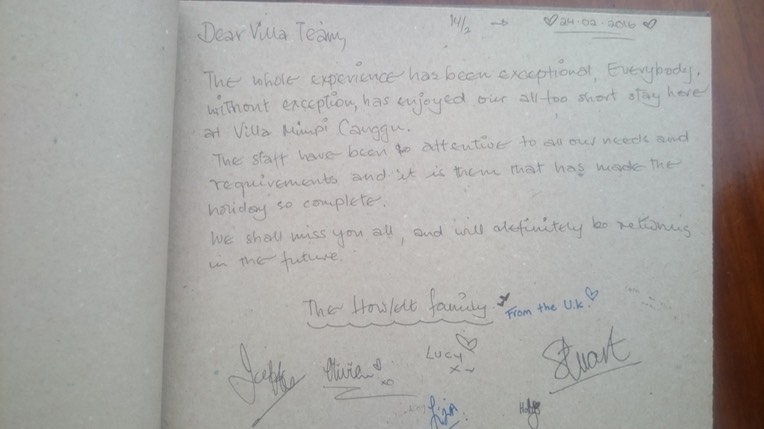 14/2 → ♡ 24.02.2016 ♡
Dear Villa Team,
The whole experience has been exceptional, Everybody,
without exception, has enjoyed our all too short stay here
at Villa Mimpi Canggu.
The staff have been so attentive to all our needs and
requirements and it is them that has made the
holiday so complete.
We shall miss you all, and will definitely be returning
in the future.
The Howlett family
From the U.K. ♡
Olivia
Lucy
x~
Stuart